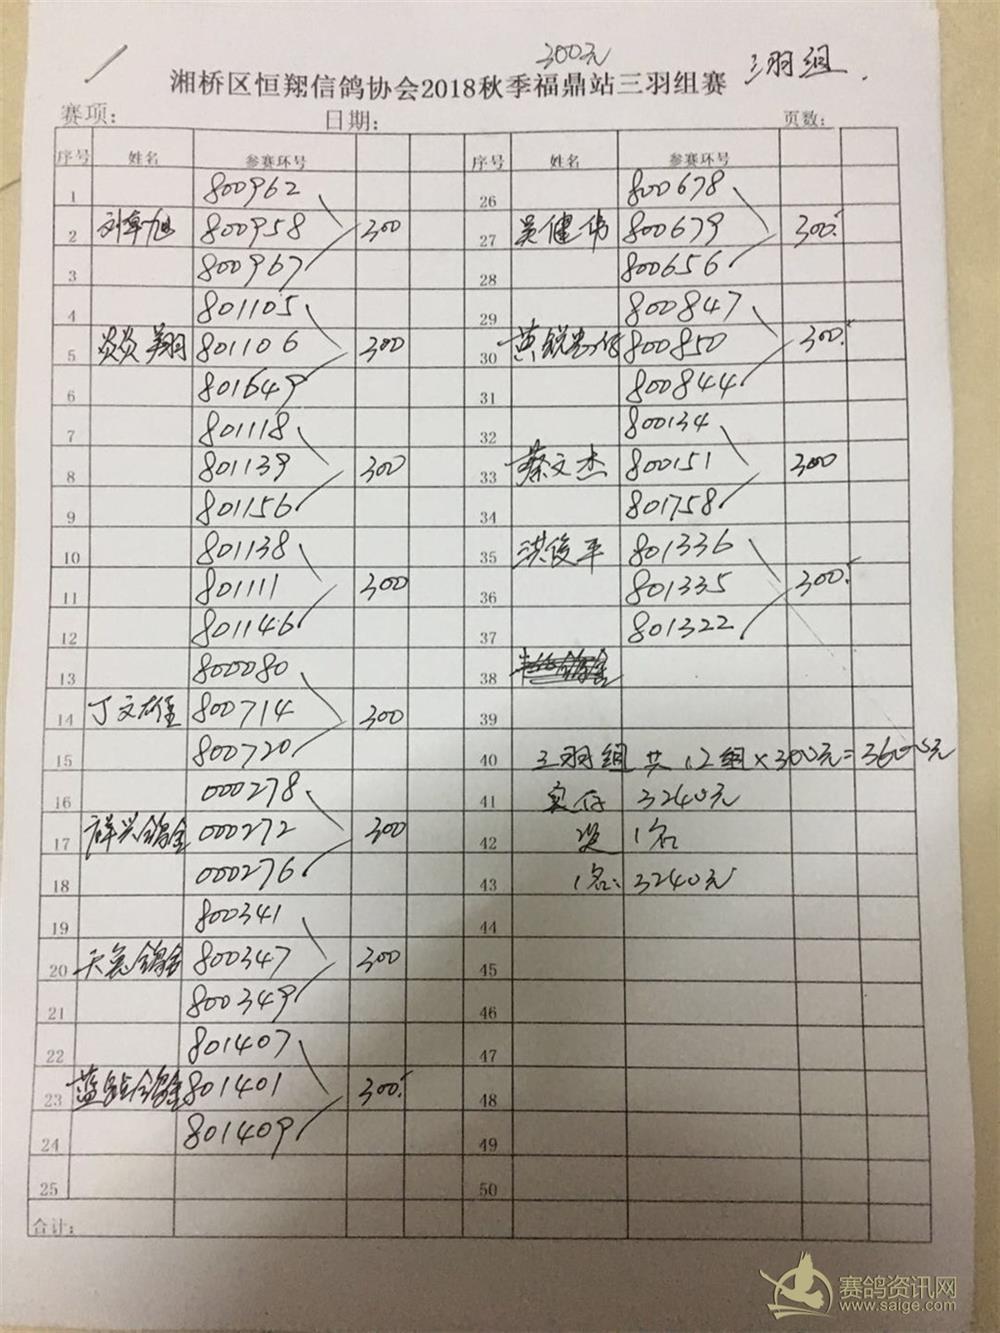 300元
湘桥区恒翔信鸽协会2018秋季福鼎站三羽组赛 三羽组
赛项: 日期: 页数:
序号 姓名 参赛环号 序号 姓名 参赛环号
1 800962 26 800678
2 刘卓旭 800958 300 27 吴健伟 800679 300
3 800967 28 800656
4 801105 29 800847
5 炎炎翔 801106 300 30 黄锐 800850 300
6 801649 31 800844
7 801118 32 800134
8 801139 300 33 蔡文杰 800151 300
9 801156 34 801758
10 801138 35 洪俊平 801336
11 801111 300 36 801335 300
12 801146 37 801322
13 800080 38
14 丁文雄 800714 300 39
15 800720 40 三羽组共12组×300元=3600元
16 000278 41 实付 3240元
17 祥兴鸽舍 000272 300 42 设 1名
18 000276 43 1名: 3240元
19 800341 44
20 鸽舍 800347 300 45
21 800349 46
22 801407 47
23 蓝鸽舍 801401 300 48
24 801409 49
25 50
合计:
赛鸽资讯网
www.saige.com